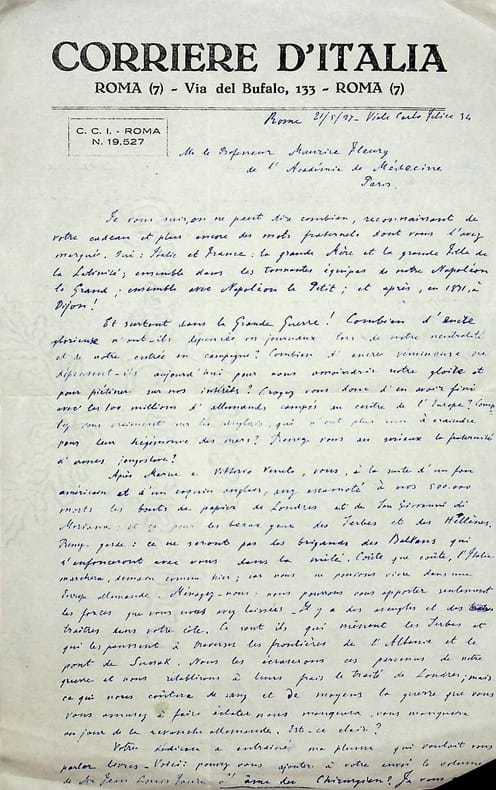 CORRIERE D'ITALIA
ROMA (7) - Via del Bufalo, 133 - ROMA (7)
C. C. I. - ROMA
N. 19,527
Rome 21/5/27 - Viale Carlo Felice 34
M. le Professeur Maurice Fleury
de l'Académie de Médecine
Paris.
Je vous suis, on ne peut dire combien, reconnaissant de
votre cadeau et plus encore des mots fraternels dont vous l'avez
marqué. Oui: Italie et France: la grande Mère et la grande Fille de
la Latinité; ensemble dans les tonnantes équipes de notre Napoléon
le Grand; ensemble avec Napoléon le Petit; et après, en 1871, à
Dijon!
Et surtout dans la Grande Guerre! Combien d'encre
glorieuse n'ont-ils dépensée vos journaux lors de notre neutralité
et de notre entrée en campagne? Combien d'encre venimeuse ne
dépensent-ils aujourd'hui pour nous amoindrir notre gloire et
pour piétiner sur nos intérêts? Croyez vous donc d'en avoir fini
avec les 100 millions d'allemands campés au centre de l'Europe? Comp
tez vous vraiment sur les anglais, qui n'ont plus rien à craindre
pour leur hégémonie des mers? Prenez vous au sérieux la fraternité
d'armes jougoslave?
Après Marne e Vittorio Veneto, vous, à la suite d'un fou
américain et d'un coquin anglais, avez escamoté à nos 500.000
morts les bouts de papier de Londres et de San Giovanni di
Moriana: et ce pour les beaux yeux des Serbes et des Hellènes.
Prenez garde: ce ne seront pas les brigands des Balkans qui
s'enfonceront avec vous dans la mêlée. Coûte que coûte, l'Italie
marchera, demain comme hier; car nous ne pouvons vivre dans une
Europe allemande. Ménagez-nous: nous pourrons vous apporter seulement
les forces que vous nous avez laissées. Il y a des aveugles et des
traîtres dans votre côté. Ce sont ils qui mènent les Serbes et
qui les poussent à traverser les frontières de l'Albanie et le
pont de Susak. Nous les écraserons ces personas de notre
guerre et nous rétablirons à leurs frais le traité de Londres; mais
ce qui nous coûtera de sang et de moyens la guerre que vous
vous amusez à faire éclater nous manquera, vous manquera
au jour de la revanche allemande. Est-ce clair?
Votre dédicace a entraîné ma plume qui voulait vous
parler livres. Voici: pouvez vous ajouter à votre envoi le volume
de M. Jean Louis Faure "L'âme du Chirurgien"? Je vous